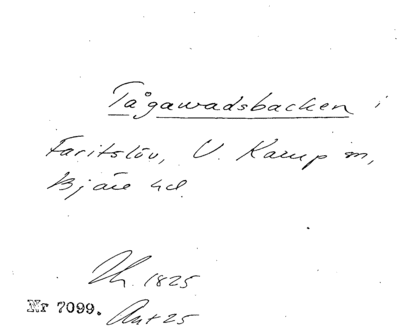 Tågawadsbacken i
Faritslöv, V. Karup m,
Bjäre hd.
Th. 1825
Nr 7099. Ant 25